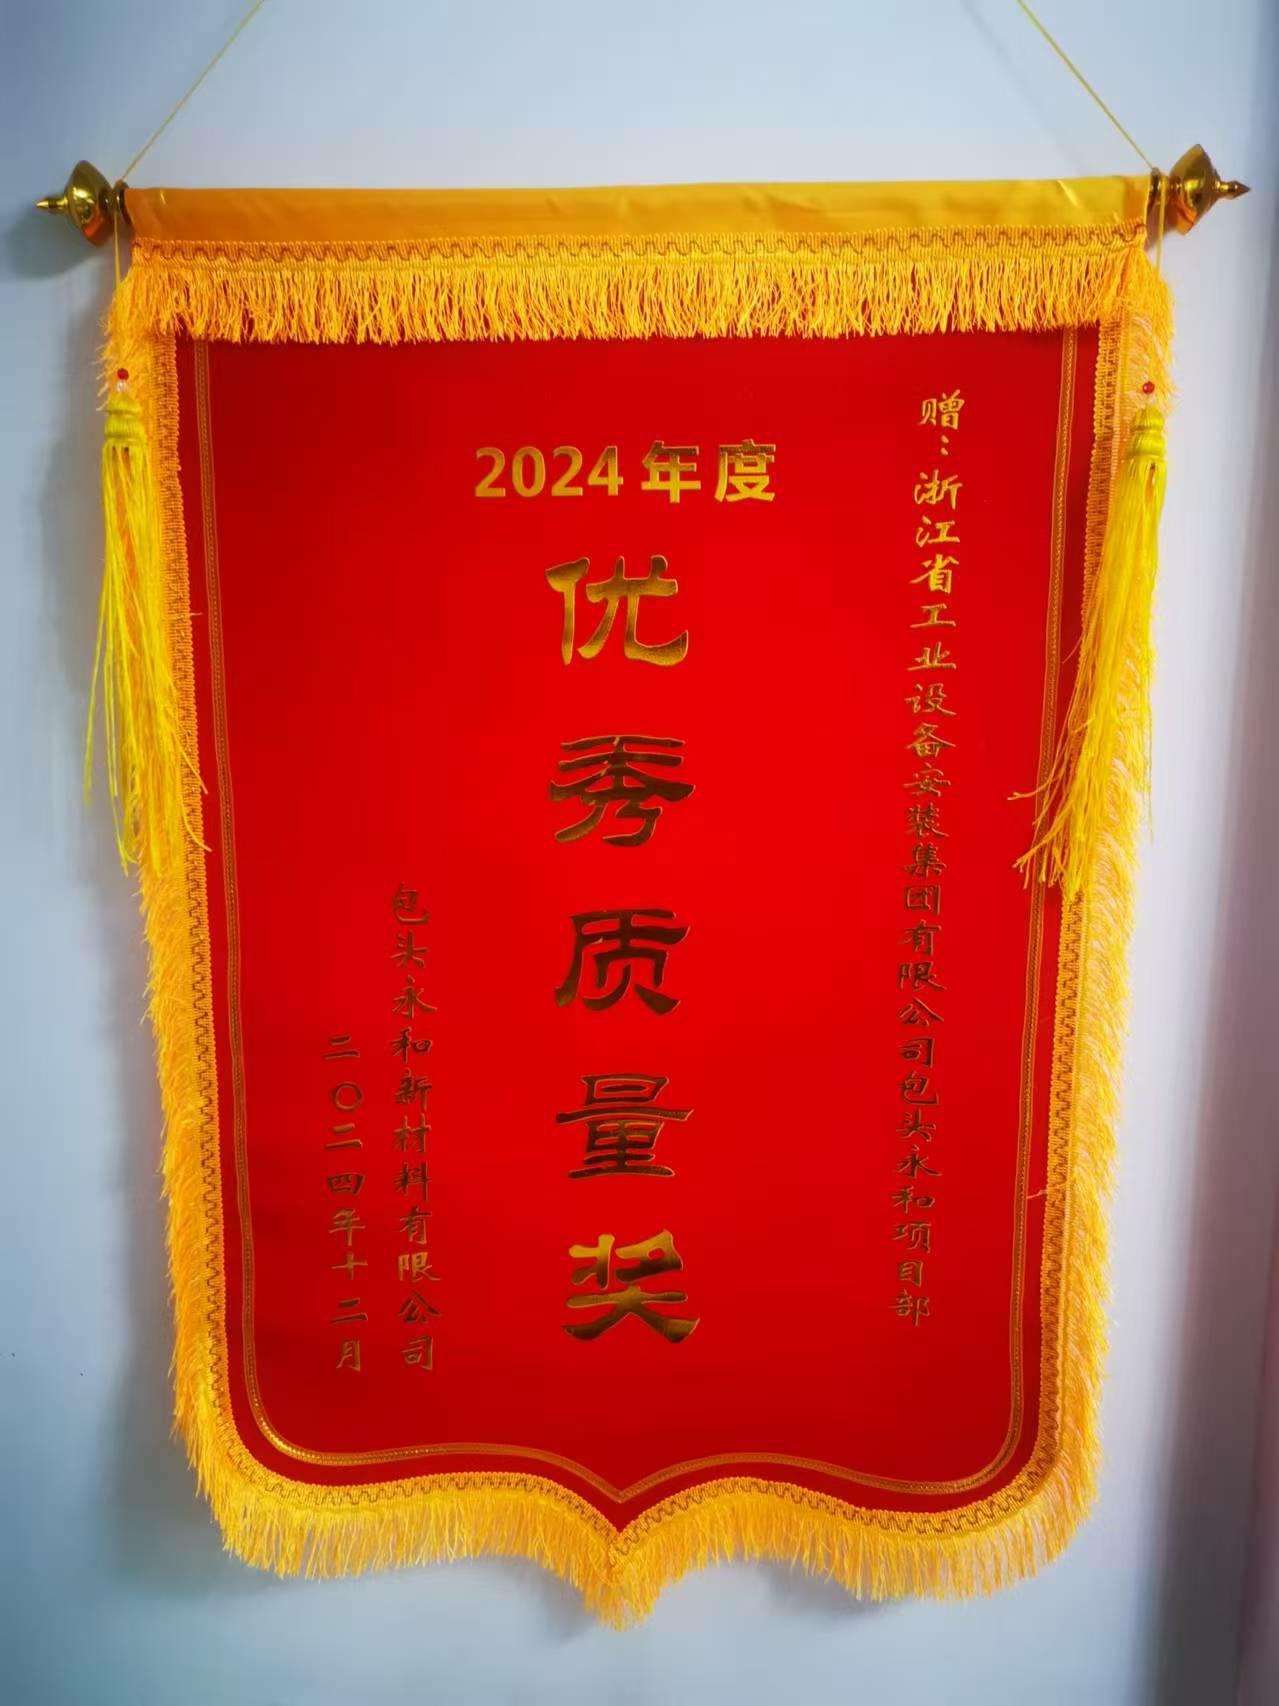 赠：浙江省工业设备安装集团有限公司包头永和项目部
2024年度
优秀质量奖
包头永和新材料有限公司
二〇二四年十二月